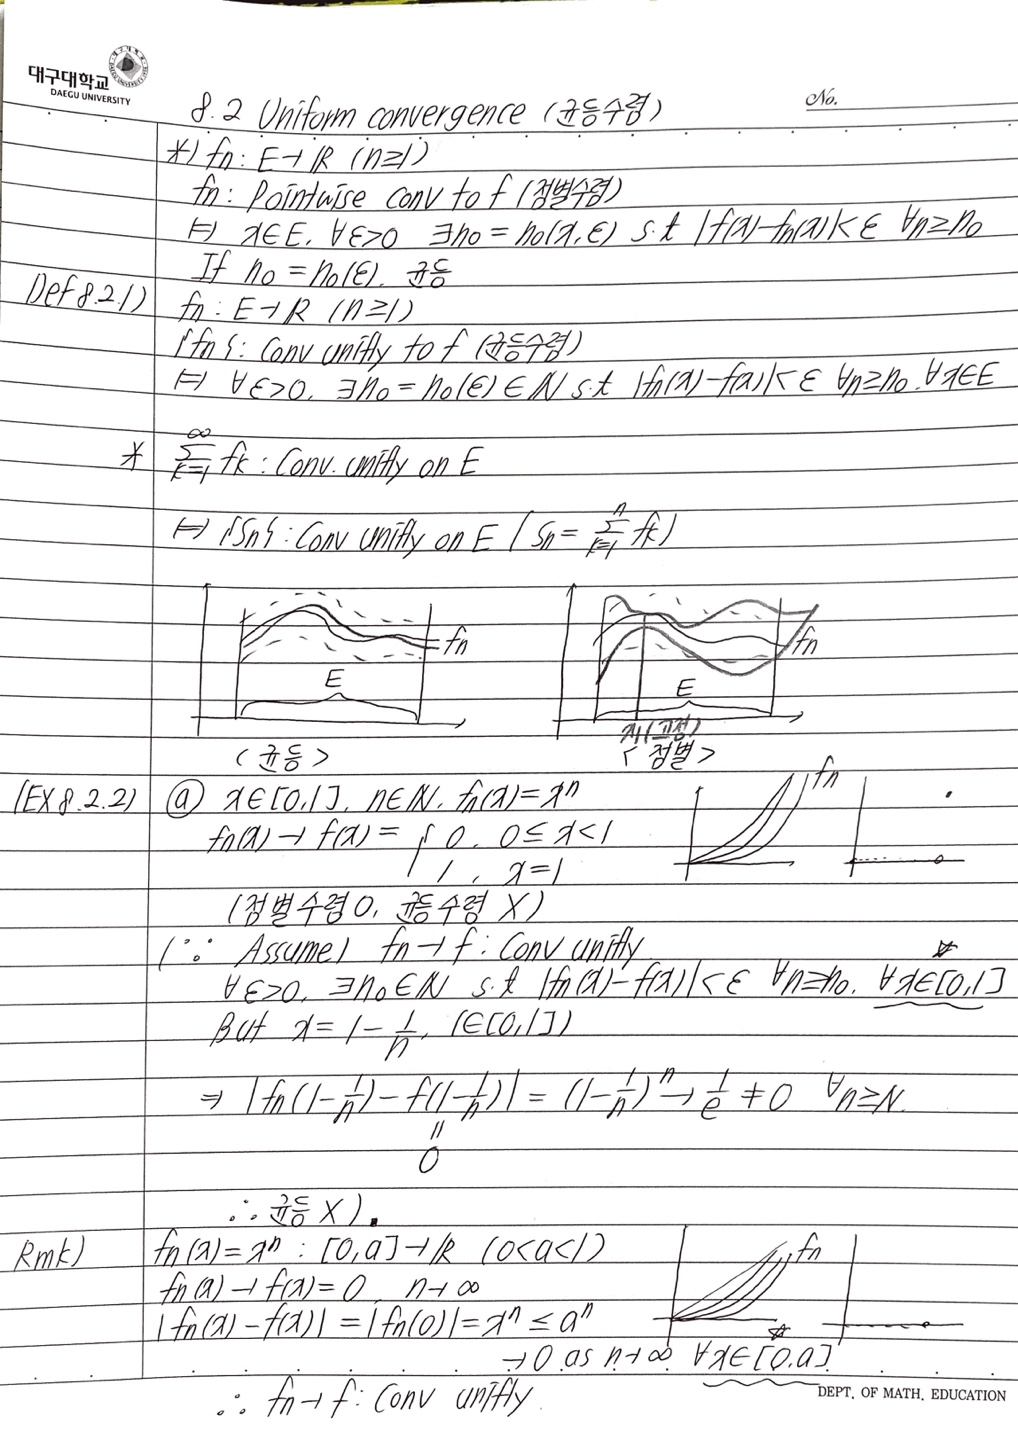 대구대학교
DAEGU UNIVERSITY
No.
8.2 Uniform convergence (균등수렴)
*) fn: E→ℝ (n≥1)
fn: Pointwise conv to f (점별수렴)
⇔ x∈E, ∀ε>0 ∃n₀=n₀(x,ε) s.t |f(x)-fn(x)|<ε ∀n≥n₀
If n₀=n₀(ε), 균등
Def 8.2.1)
fn: E→ℝ (n≥1)
{fn}: Conv unifly to f (균등수렴)
⇔ ∀ε>0, ∃n₀=n₀(ε)∈ℕ s.t |fn(x)-f(x)|<ε ∀n≥n₀, ∀x∈E
* ∑_{k=1}^{∞} fk: Conv. unifly on E
⇔ {Sn}: Conv unifly on E (Sn=∑_{k=1}^{n} fk)
fn
E
<균등>
fn
E
x1(고정)
<점별>
(EX 8.2.2) ⓐ x∈[0,1], n∈ℕ, fn(x)=xⁿ
fn
fn(x)→f(x)={ 0, 0≤x<1
1, x=1
(점별수렴 O, 균등수렴 X)
(∵ Assume) fn→f: Conv unifly
∀ε>0, ∃n₀∈ℕ s.t |fn(x)-f(x)|<ε ∀n≥n₀, ∀x∈[0,1]
☆
But x=1-1/n, (∈[0,1])
⇒ |fn(1-1/n)-f(1-1/n)|=(1-1/n)ⁿ→1/e≠0 ∀n≥N.
=
0
∴ 균등 X).
Rmk) fn(x)=xⁿ: [0,a]→ℝ (0<a<1)
fn
fn(x)→f(x)=0, n→∞
|fn(x)-f(x)|=|fn(0)|=xⁿ≤aⁿ
☆
→0 as n→∞ ∀x∈[0,a]
∴ fn→f: Conv unifly.
DEPT. OF MATH. EDUCATION